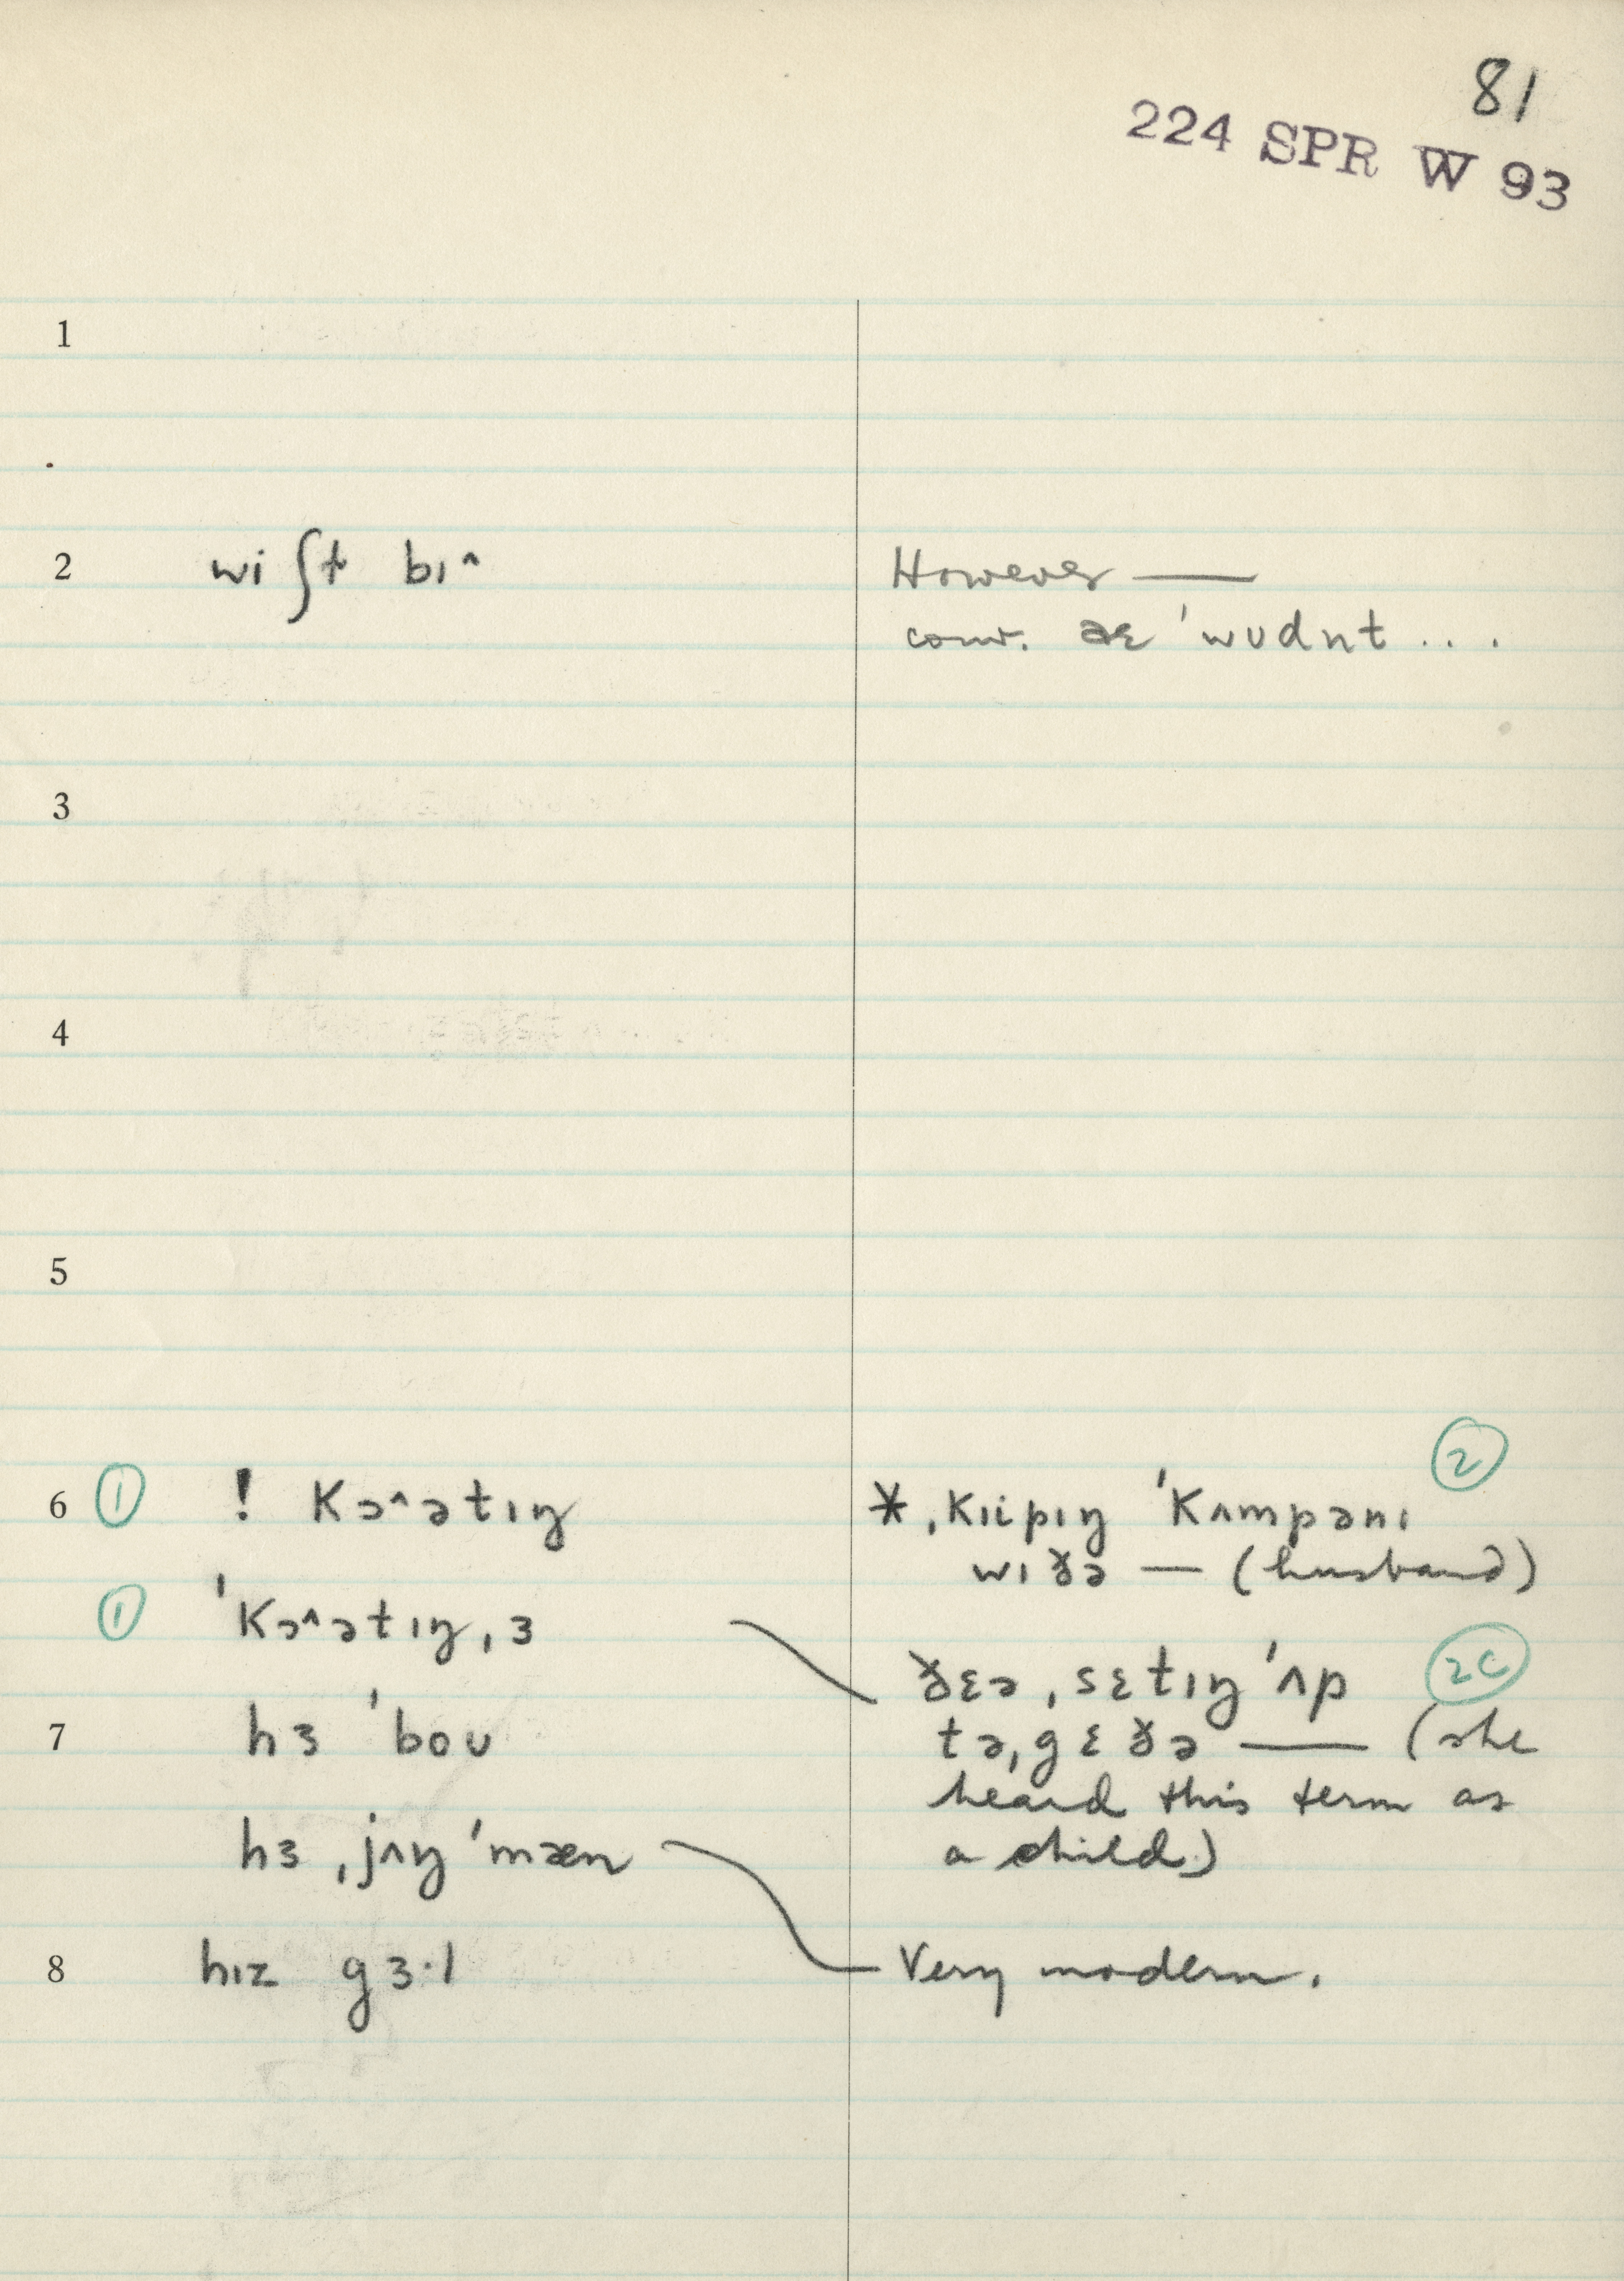 81
224 SPR W 93
1
2 wi ʃt bɪ^
However —
conv. əɛ 'wʊdnt ...
3
4
5
6 ① ! kɔ^ətɪŋ
* ˌkɪipɪŋ 'kʌmpənɪ ②
wɪðə — (husband)
① 'kɔ^ətɪŋ ˌɜ
ðɛə ˌsɛtɪŋ 'ʌp ②c
tə ˌgɛðə — (she
7 hɜ 'boʊ
heard this term as
hɜ ˌjʌŋ 'mæn
a child)
8 hɪz gɜ·l
Very modern.